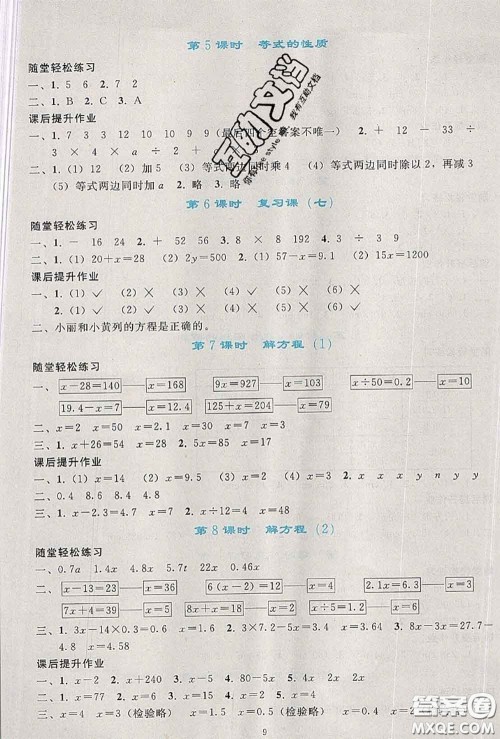 第5课时　等式的性质
随堂轻松练习
一、1. 5　6　2. 7　2
二、1. B　2. C　3. A
课后提升作业
一、1. 7　3　3　12　10　9　9　（最后四个答案不唯一）　2. +　12　－　33　÷
3　×　4　x　a　÷　2　÷
二、1.（1）12（2）加5（3）等式两边同时乘4（4）等式两边同时除以2，再减3
（5）等式两边同时加a　2. 略　3. 略
第6课时　复习课（七）
随堂轻松练习
一、1. －　16　24　2. +　52　56　3. ×　8　×　8　192　4. ÷　3　÷　3　129
二、1.（1）20+x=28（2）2y=500　2.（1）57－x=9.1（2）15x=1200
课后提升作业
一、1.（1）✓（2）×（3）×（4）✓（5）×（6）✓
2.（1）✓（2）✓（3）×（4）×（5）×（6）×
二、小丽和小黄列的方程是正确的。
第7课时　解方程（1）
随堂轻松练习
一、x－28=140　x=168　9x=927　x=103　x÷50=0.2　x=10
19.4－x=7　x=12.4　125+x=204　x=79
二、x=2　x=54　x=2.1　x=30　x=7　x=50
三、1. x+26=54　x=28　2. 4x=68　x=17
课后提升作业
一、1.（1）x=14（2）x=9（3）x=24（4）x=63　2. x　x　x　y　n　y　y
二、0.4　8.6　8　2.4　0.8　4.8
三、1. x+15=30　x=15　2. x÷12=4　x=48
第8课时　解方程（2）
随堂轻松练习
一、0.7a　1.4x　4.2x　5.7t　22x　0.46x
二、x－13=23　x=36　6（x－2）=12　x=4　2.1x=6.3　x=3
7x+4=39　x=5　9x－7x=4　x=2　x÷5=8　x=40
三、1. 3x－14×0.3=0.9　x=1.7　2. 3×7.2－5x=3.4　x=3.64　3. 8x－6x=9
x=4.5　4. x－4.58=0　x=4.58
课后提升作业
一、1. x－2　2. x+240　3. x÷4　4. x－5　5. x－2　6. x－4
二、1. x=77　2. x=12　3. x=0.2　4. x=8　5. x=10　6. x=2
三、x=4（检验略）　x=9（检验略）　x=5
9